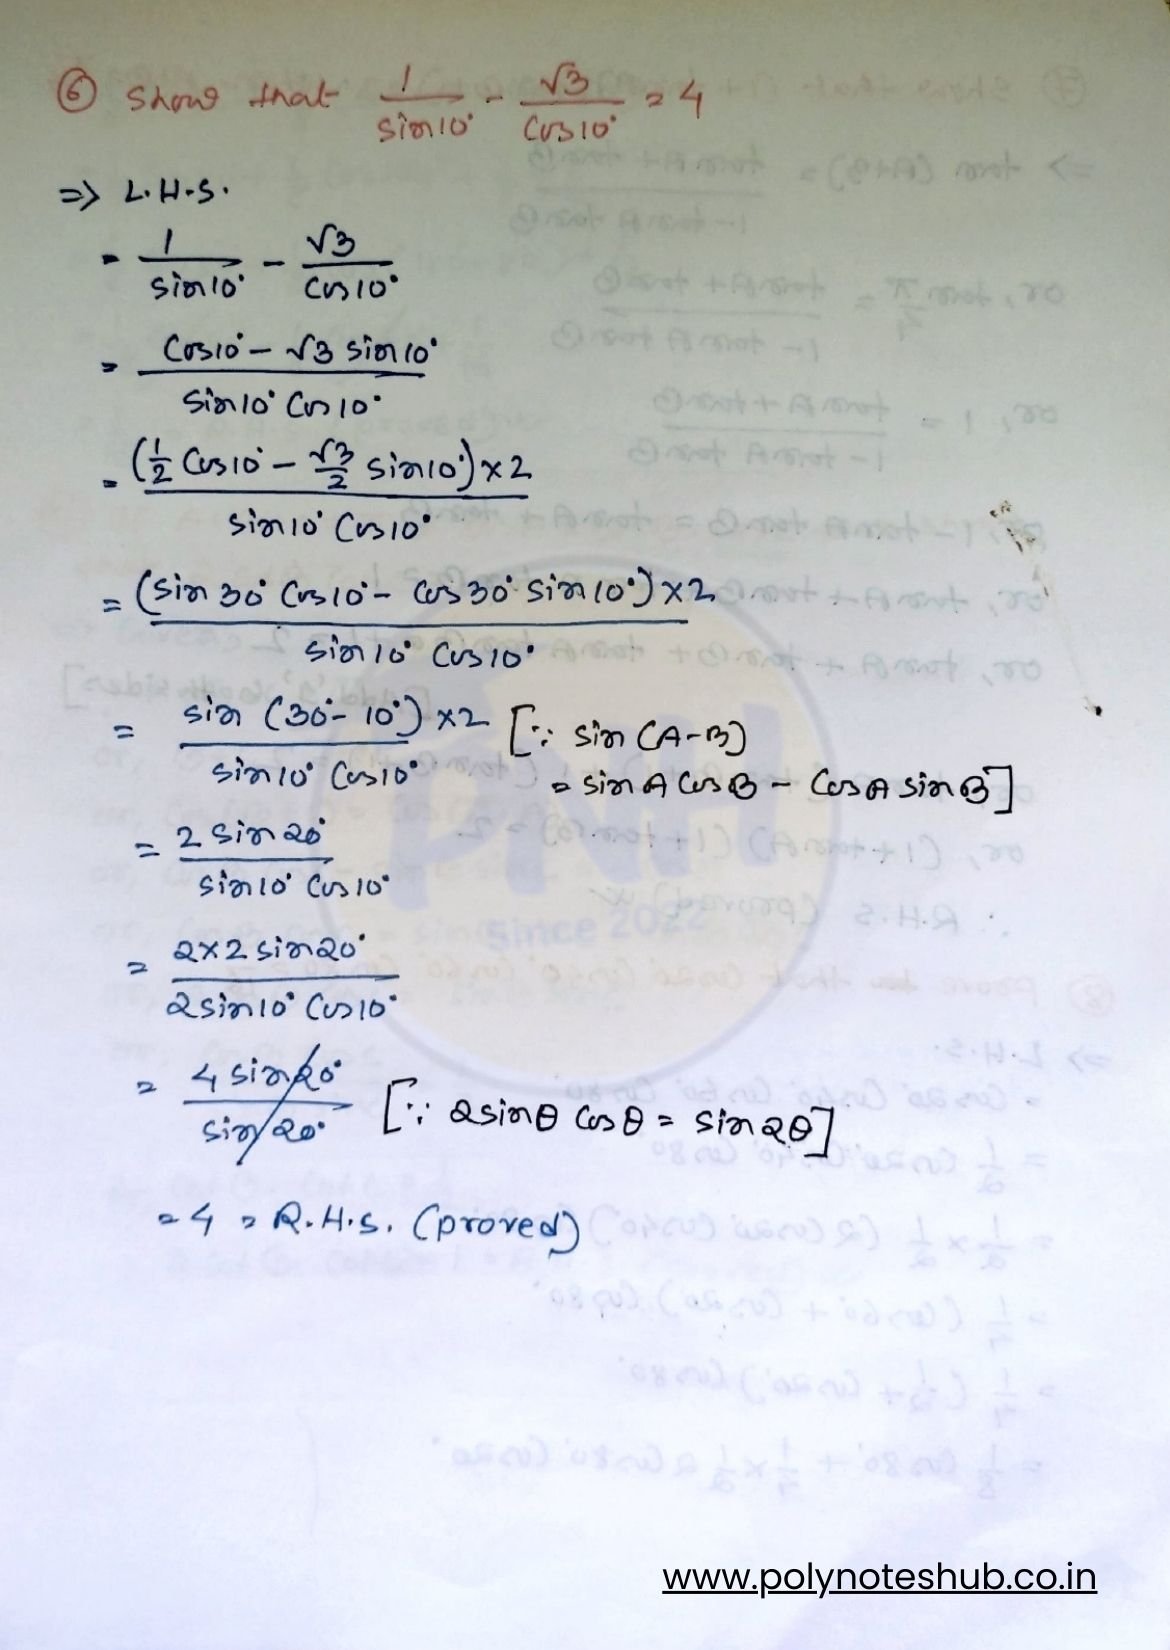 ⑥ Show that 1/sin10° - √3/cos10° = 4
=> L.H.S.
= 1/sin10° - √3/cos10°
= (cos10° - √3 sin10°)/(sin10° cos10°)
= ((1/2 cos10° - √3/2 sin10°)×2)/(sin10° cos10°)
= ((sin30° cos10° - cos30° sin10°)×2)/(sin10° cos10°)
= (sin(30°-10°)×2)/(sin10° cos10°) [∵ sin(A-B)
= sinA cosB - cosA sinB]
= 2 sin20°/(sin10° cos10°)
= 2×2 sin20°/(2sin10° cos10°)
= 4 sin20°/sin20° [∵ 2sinθ cosθ = sin2θ]
= 4 = R.H.S. (proved)
PNH
Since 2022
www.polynoteshub.co.in